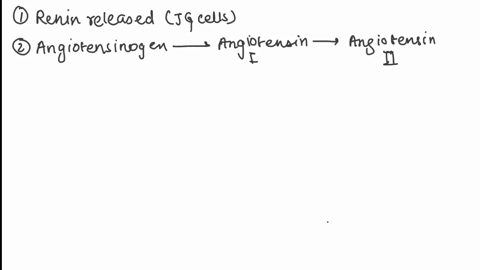 ① Renin released (JG cells)
② Angiotensinogen → Angiotensin I → Angiotensin II